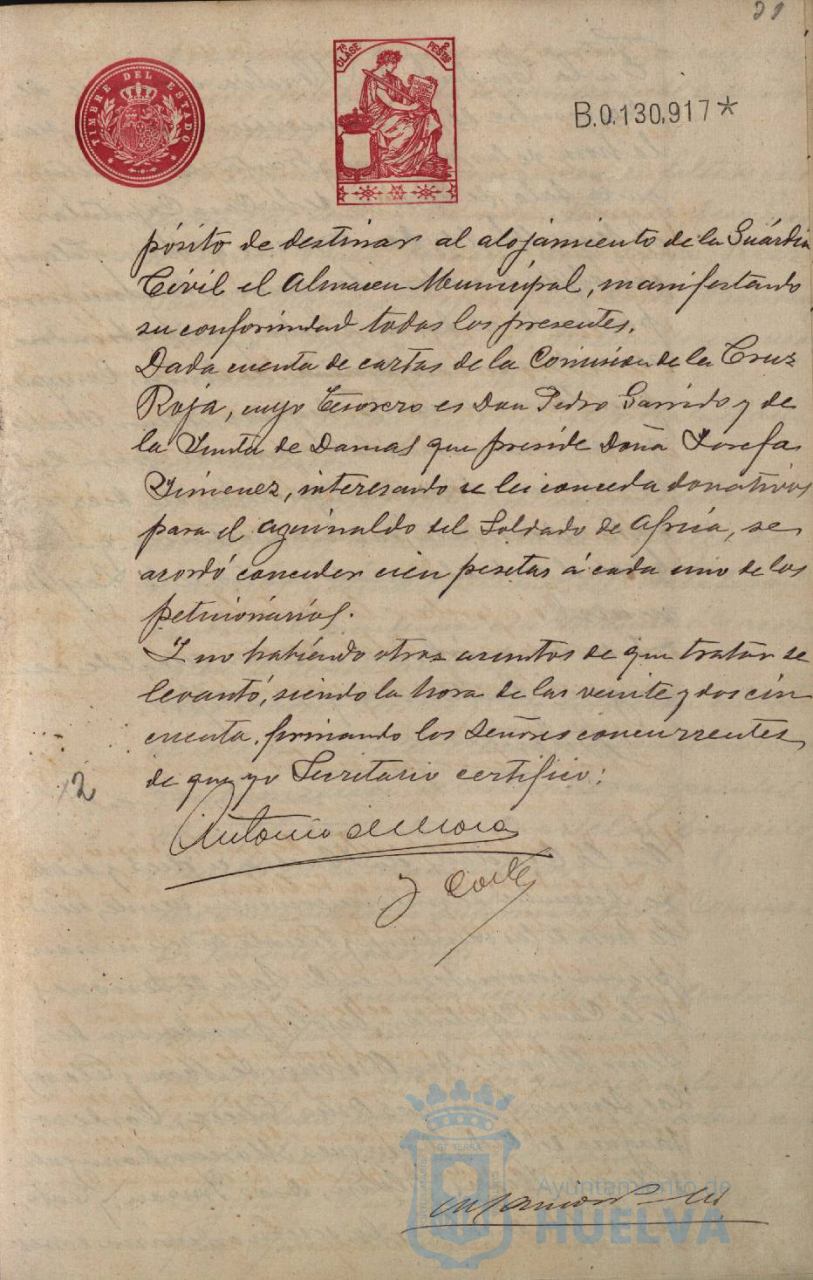 21
TIMBRE DEL ESTADO
7ª CLASE 2 PESTAS
B.0.130.917*
pósito de destinar al alojamiento de la Guárdia
Cívil el Almacen Municipal, manifestando
su conformidad todos los presentes.
Dada cuenta de cartas de la Comisión de la Cruz
Roja, cuyo Tesorero es Don Pedro Garrido y de
la Junta de Damas que preside Doña Josefa
Jimenez, interesando se les conceda donativos
para el aguinaldo del Soldado de Africa, se
acordó conceder cien pesetas á cada uno de los
peticionários.
Y no habiendo otros asuntos de que tratar se
levantó, siendo la hora de las veinte y dos cin
cuenta, firmando los Señores concurrentes
de que yo Secretario certifico:
12
Antonio de Mora
Ayuntamiento de
HUELVA